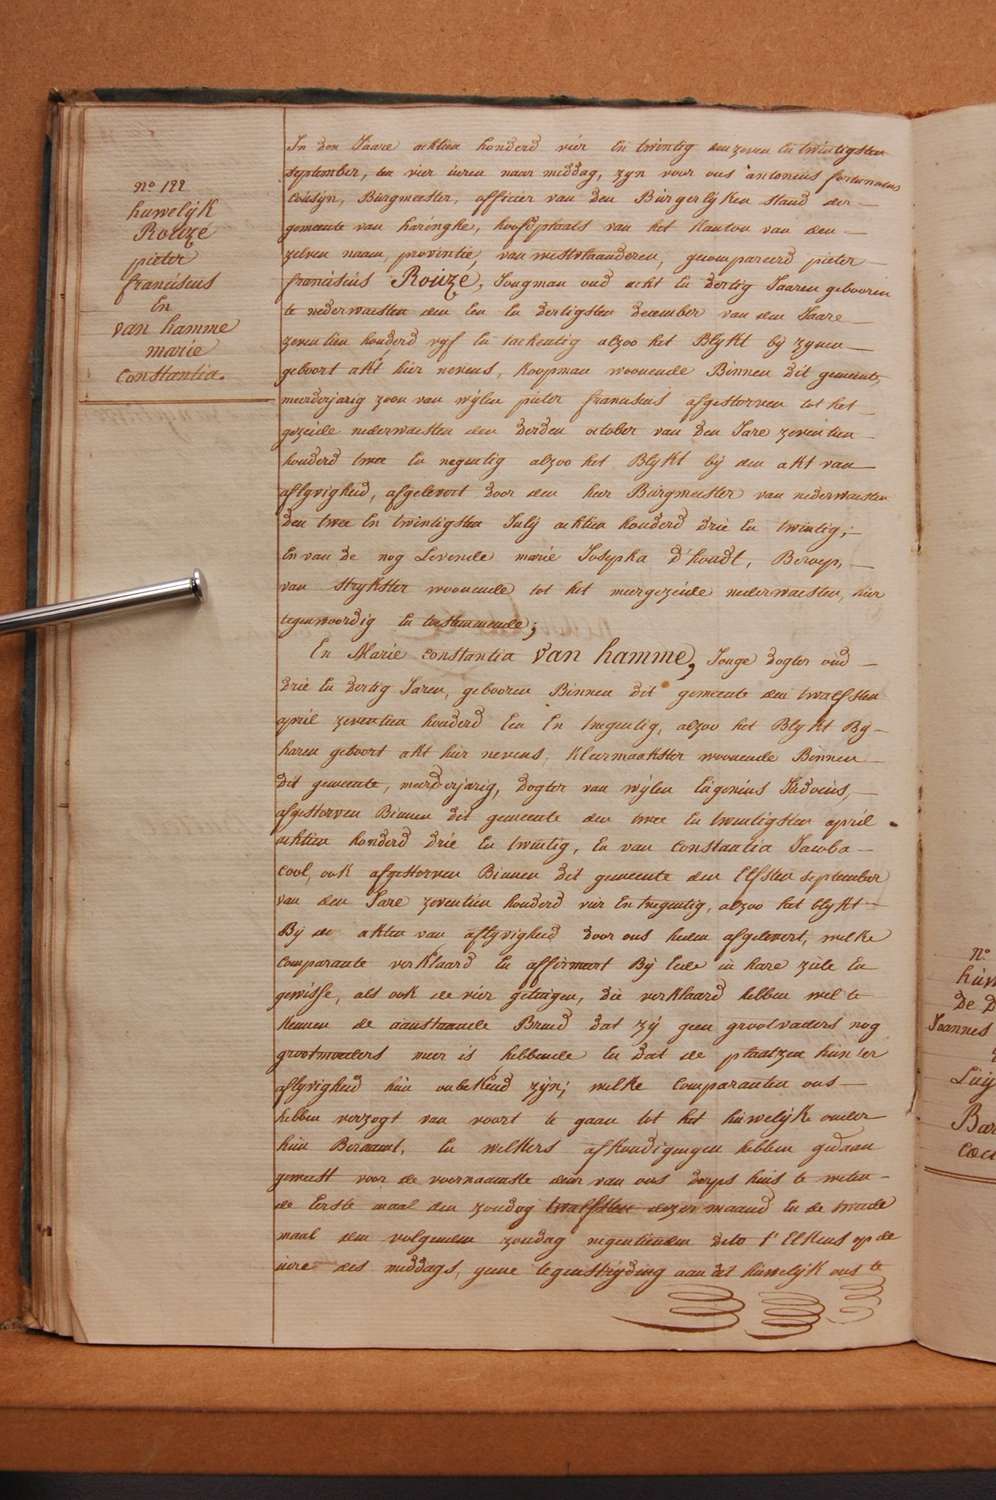 n° 122
huwelijk
Rouzé
pieter
franciscus
En
van hamme
marie
constantia.
In den Jaare achtien honderd vier En twintig den zeven En twintigsten
september, ten vier uren naar middag, zyn voor ons antonius fortunatus
Cousyn, Burgmeester, officier van den Burgerlyken stand der
gemeente van haringhe, hoofdplaats van het kanton van den
zelven naam, provintie van westvlaanderen, gecompareerd pieter
franciscus Rouzé, Jongman oud acht En dertig Jaaren gebooren
te nederwaesten den Een En dertigsten december van den Jaare
zeventien honderd vyf En tachentig alzoo het Blykt by zynen
geboort akt hier nevens, koopman woonende Binnen dit gemeente,
meerderjarig zoon van wylen pieter franciscus afgestorven tot het
gezeide nederwaesten den derden october van den Jare zeventien
honderd twee En negentig alzoo het Blykt by den akt van
aflyvigheid, afgelevert door den heer Burgmeester van nederwaesten
den twee En twintigsten July achtien honderd drie En twintig;
En van de nog Levende marie Josepha D'houdt, Beroep,
van strykster woonende tot het meergezeide nederwaesten, hier
tegenwoordig En toestemmende;
En Marie constantia van hamme, Jonge dogter oud
drie En dertig Jaren, gebooren Binnen dit gemeente den twalfsten
april zeventien honderd Een En tnegentig, alzoo het Blykt By
haren geboort akt hier nevens, kleermaakster woonende Binnen
dit gemeente, meerderjarig, dogter van wylen Eugenius Judocus,
afgestorven Binnen dit gemeente den twee En twintigsten april
achtien honderd drie En twintig, En van constantia Jacoba
cool, ook afgestorven Binnen dit gemeente den Elfsten september
van den Jare zeventien honderd vier En tnegentig, alzoo het blykt
By de akten van aflyvigheid door ons heden afgelevert, welke
comparante verklaard En affirmeert By Eede in hare ziele En
gewisse, als ook de vier getuigen, die verklaard hebben wel te
kennen de aanstaande Bruid dat zy geen grootvaders nog
grootmoeders meer is hebbende En dat de plaatzen hun'er
aflyvigheid hun onbekend zyn; welke comparanten ons
hebben verzogt van voort te gaan tot het huwelyk onder
hun Beraamt, En welkers afkondigingen hebben gedaan
geweest voor de voornaamste deur van ons dorps huis te weten
de Eerste maal den zondag twalfsten dezer maand En de tweede
maal den volgenden zondag negentienden dito t'Elkens op de
uire des middags, geene tegenstryding aan dit huwelyk ons te
n°
huw
De D
Joannes
Luy
Bar
coe